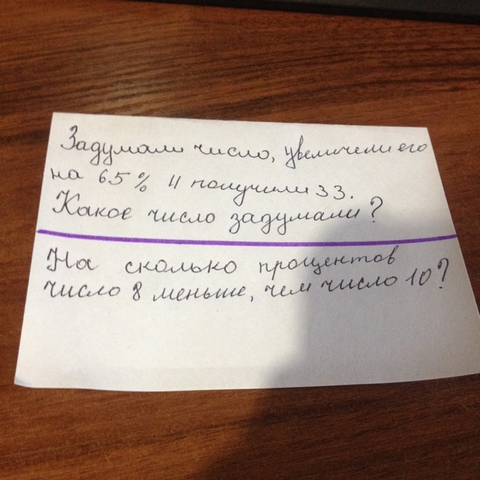 Задумали число, увеличили его
на 65% и получили 33.
Какое число задумали?
На сколько процентов
число 8 меньше, чем число 10?